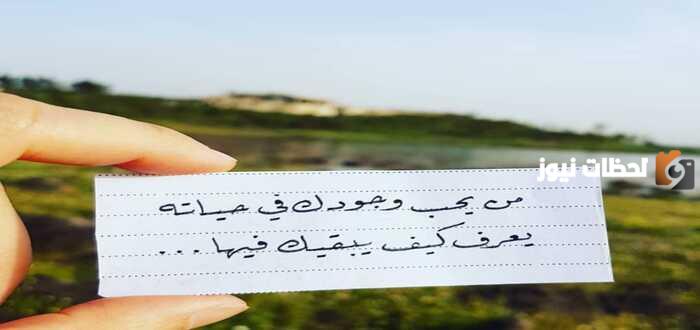 لحظات نيوز
من يحب وجودك في حياته
يعرف كيف يبقيك فيها...